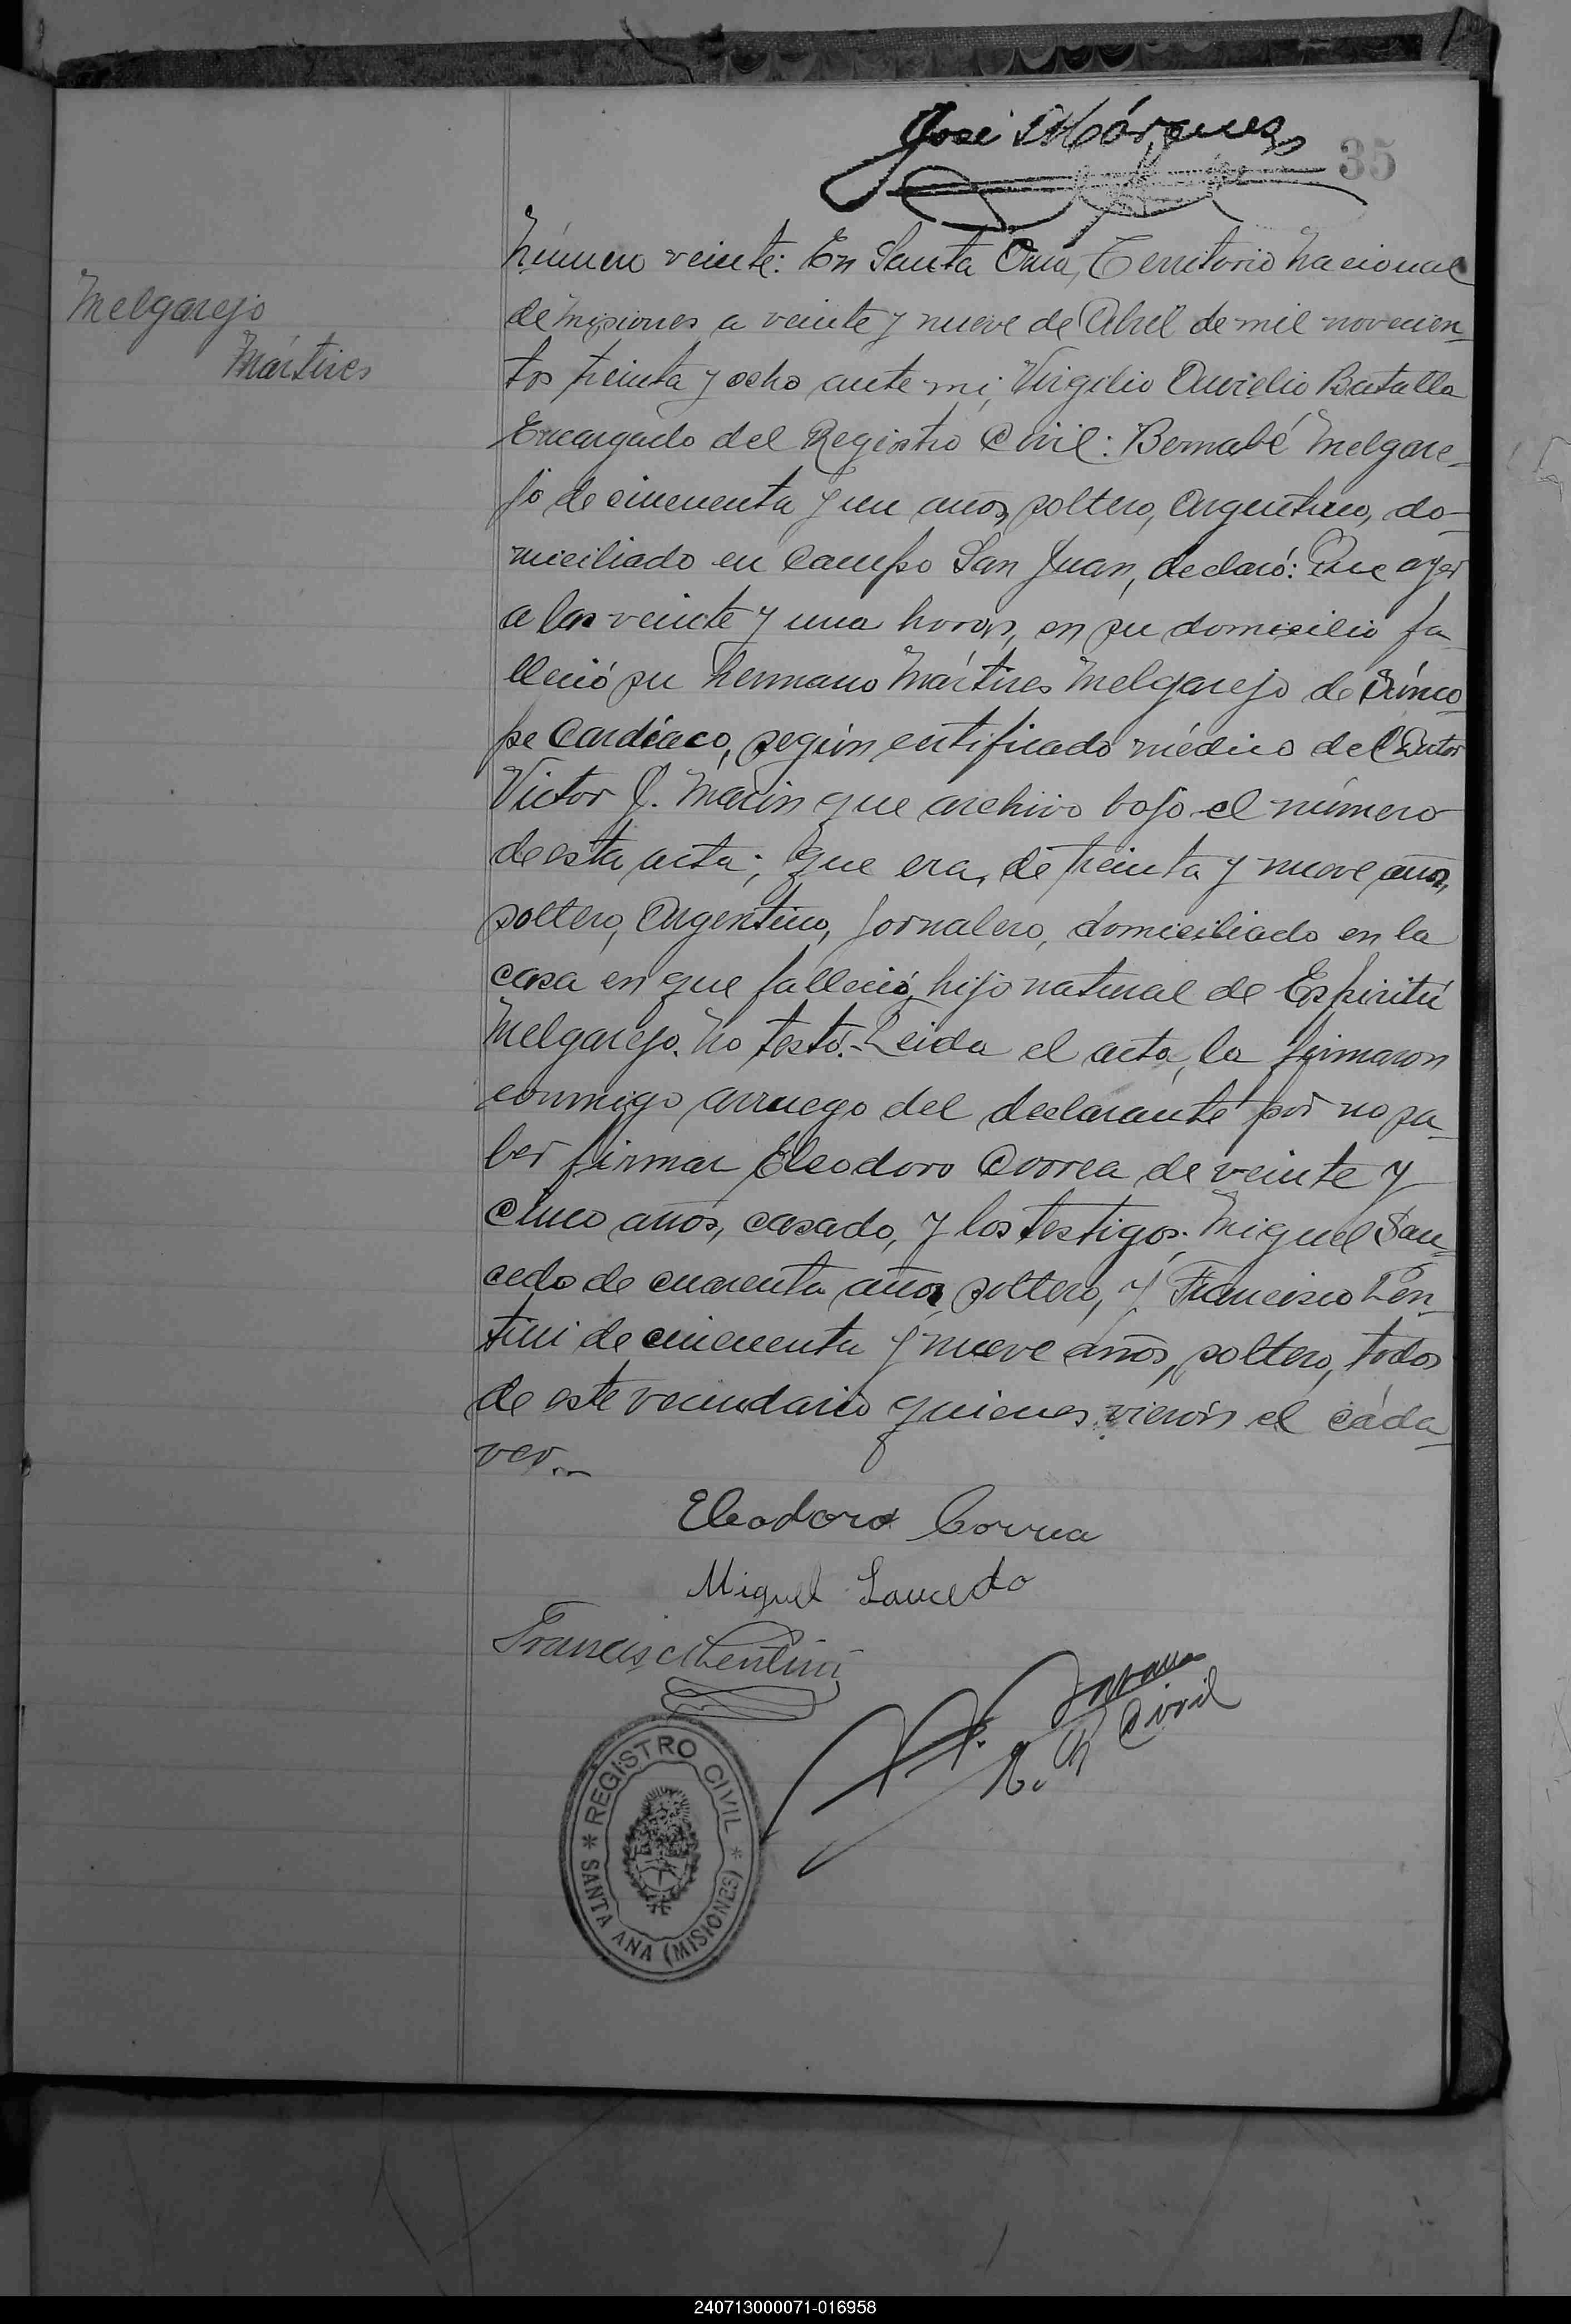 José Márquez
35
Melgarejo
Mártires
Número veinte: En Santa Ana, Territorio Nacional
de Misiones a veinte y nueve de Abril de mil novecien-
tos treinta y ocho ante mi, Virgilio Aurelio Batalla
Encargado del Registro Civil: Bernabé Melgare-
jo de cincuenta y un años, soltero, Argentino, do-
miciliado en Campo San Juan, declaró: Que ayer
a las veinte y una horas, en su domicilio fa-
lleció su hermano Mártires Melgarejo de Sínco-
pe Cardíaco, según certificado médico del Dotor
Victor J. Marín que archivo bajo el número
de esta acta; que era, de treinta y nueve años,
soltero, Argentino, Jornalero, domiciliado en la
casa en que falleció, hijo natural de Espiritú
Melgarejo. No testó.- Leida el acta, la firmaron
conmigo arruego del declarante por no sa-
ber firmar Eleodoro Correa de veinte y
cinco años, casado, y los testigos: Miguel Sau-
cedo de cuarenta años, soltero, y Francisco Len-
tini de cincuenta y nueve años, soltero, todos
de este vecindario quienes vierón el cáda-
ver.-
Eleodoro Correa
Miguel Saucedo
Francisco Lentini
Civil
REGISTRO CIVIL
SANTA ANA (MISIONES)
240713000071-016958